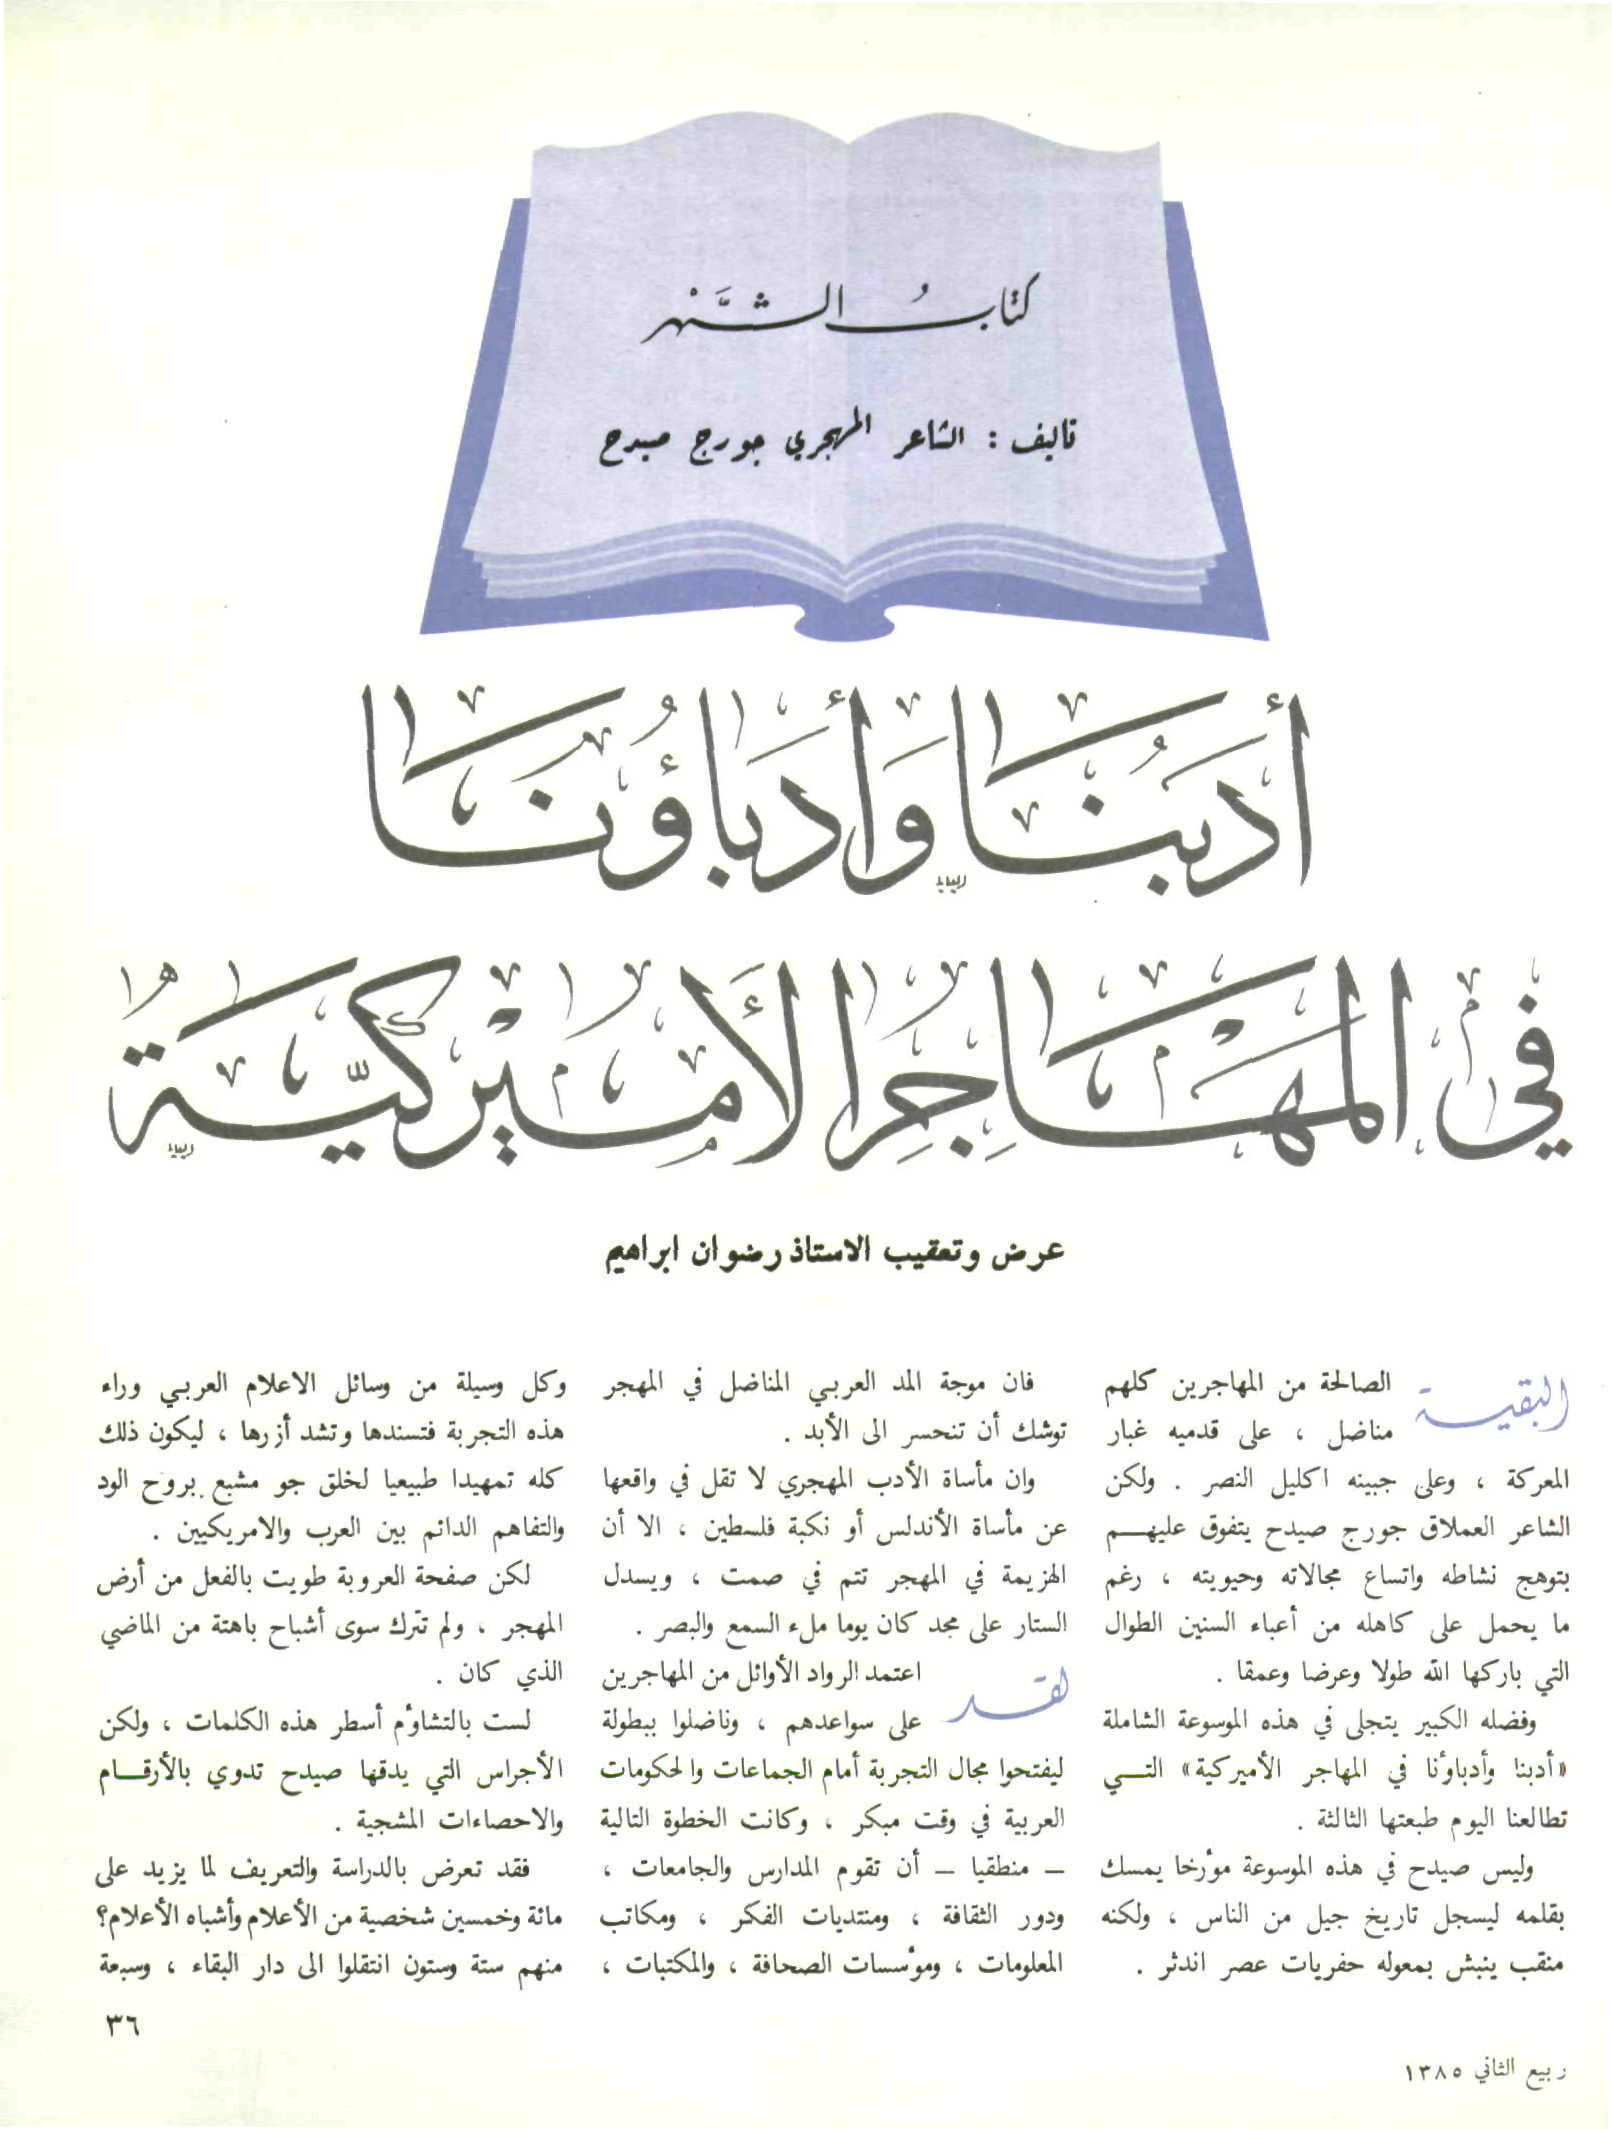 كتاب الشهر
تأليف : الشاعر المهجري جورج صيدح
أدبنا وأدباؤنا
في المهاجر الأميركية
عرض وتعقيب الاستاذ رضوان ابراهيم
البقية الصالحة من المهاجرين كلهم
مناضل ، على قدميه غبار
المعركة ، وعلى جبينه اكليل النصر . ولكن
الشاعر العملاق جورج صيدح يتفوق عليهم
بتوهج نشاطه واتساع مجالاته وحيويته ، رغم
ما يحمل على كاهله من أعباء السنين الطوال
التي باركها الله طولا وعرضا وعمقا .
وفضله الكبير يتجلى في هذه الموسوعة الشاملة
«أدبنا وأدباؤنا في المهاجر الأميركية» التي
تطالعنا اليوم طبعتها الثالثة .
وليس صيدح في هذه الموسوعة مؤرخا يمسك
بقلمه ليسجل تاريخ جيل من الناس ، ولكنه
منقب ينبش بمعوله حفريات عصر اندثر .
فان موجة المد العربي المناضل في المهجر
توشك أن تنحسر الى الأبد .
وان مأساة الأدب المهجري لا تقل في واقعها
عن مأساة الأندلس أو نكبة فلسطين ، الا أن
الهزيمة في المهجر تتم في صمت ، ويسدل
الستار على مجد كان يوما ملء السمع والبصر .
لقد اعتمد الرواد الأوائل من المهاجرين
على سواعدهم ، وناضلوا ببطولة
ليفتحوا مجال التجربة أمام الجماعات والحكومات
العربية في وقت مبكر ، وكانت الخطوة التالية
– منطقيا – أن تقوم المدارس والجامعات ،
ودور الثقافة ، ومنتديات الفكر ، ومكاتب
المعلومات ، ومؤسسات الصحافة ، والمكتبات ،
وكل وسيلة من وسائل الاعلام العربي وراء
هذه التجربة فتسندها وتشد أزرها ، ليكون ذلك
كله تمهيدا طبيعيا لخلق جو مشبع بروح الود
والتفاهم الدائم بين العرب والامريكيين .
لكن صفحة العروبة طويت بالفعل من أرض
المهجر ، ولم تترك سوى أشباح باهتة من الماضي
الذي كان .
لست بالتشاؤم أسطر هذه الكلمات ، ولكن
الأجراس التي يدقها صيدح تدوي بالأرقام
والاحصاءات المشجية .
فقد تعرض بالدراسة والتعريف لما يزيد على
مائة وخمسين شخصية من الأعلام وأشباه الأعلام؟
منهم ستة وستون انتقلوا الى دار البقاء ، وسبعة
٣٦
ربيع الثاني ١٣٨٥